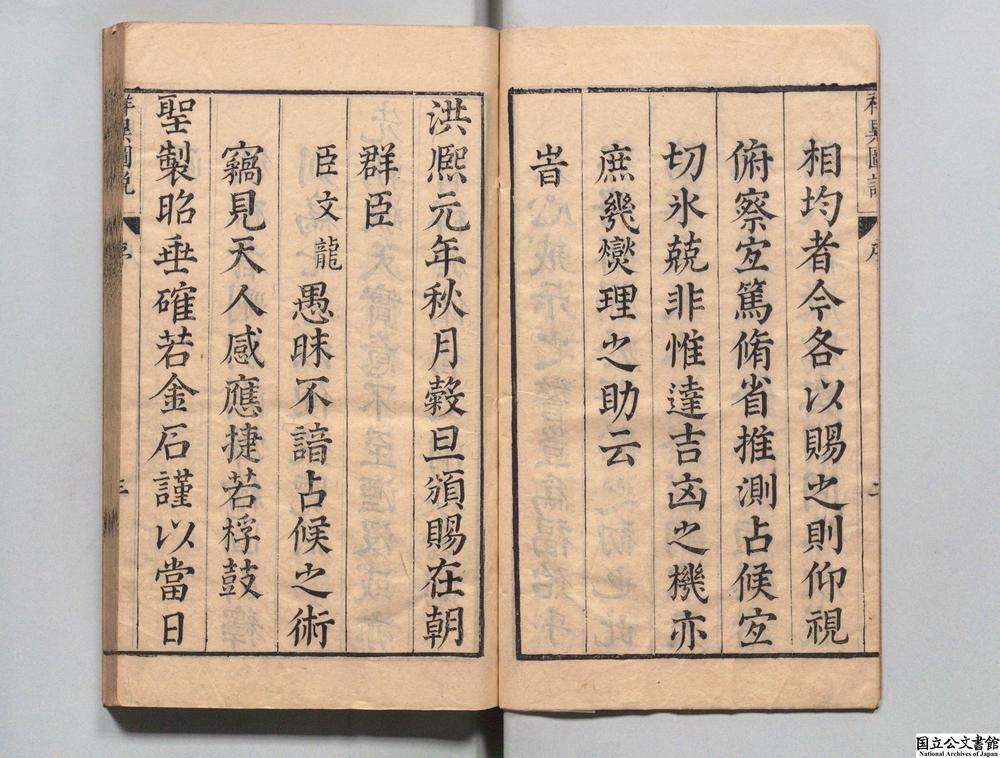 相均者今各以賜之則仰視
俯察宐篤脩省推測占候宐
切氷兢非惟達吉凶之機亦
庶幾爕理之助云
旹
洪熙元年秋月糓旦頒賜在朝
群臣
臣文龍愚昧不諳占候之術
竊見天人感應捷若桴鼓
聖製昭垂確若金石謹以當日
祥異圖說
序
二
祥異圖說
序
三
国立公文書館
National Archives of Japan